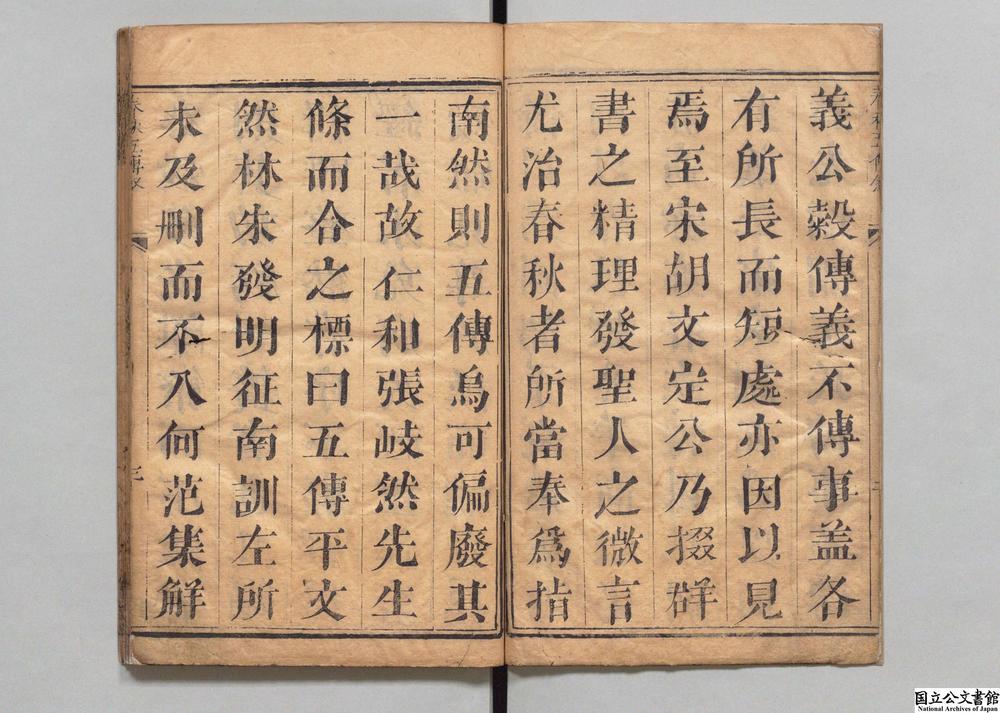 義公穀傳義不傳事盖各
有所長而短處亦因以見
焉至宋胡文定公乃掇群
書之精理發聖人之微言
尤治春秋者所當奉爲指
南然則五傳烏可偏廢其
一哉故仁和張岐然先生
條而合之標曰五傳平文
然林朱發明征南訓左所
未及刪而不入何范集解
国立公文書館
National Archives of Japan